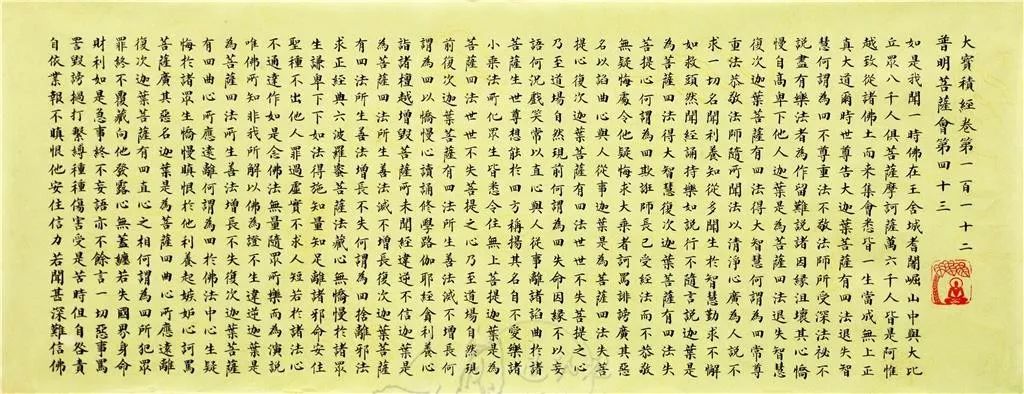 大寶積經卷第一百一十二
普明菩薩會第四十三
如是我聞一時佛在王舍城耆闍崛山中與大比
丘眾八千人俱菩薩摩訶薩萬六千人皆是阿惟
越致從諸佛土而來集會悉皆一生當成無上正
真大道爾時世尊告大迦葉菩薩有四法退失智
慧何謂為四不尊重法不敬法師所受深法祕不
說盡有樂法者為作留難說諸因緣沮壞其心憍
慢自高卑下他人迦葉是為菩薩四法退失智慧
復次迦葉菩薩有四法得大智慧何謂為四常尊
重法恭敬法師隨所聞法以清淨心廣為人說不
求一切名聞利養知從多聞生於智慧勤求不懈
如救頭然聞經誦持樂如說行不隨言說迦葉是
為菩薩四法得大智慧復次迦葉菩薩有四法失
菩提心何謂為四欺誑師長已受經法而不恭敬
無疑悔處令他疑悔求大乘者訶罵誹謗廣其惡
名以諂曲心與人從事迦葉是為菩薩四法失菩
提心復次迦葉菩薩有四法世世不失菩提之心
乃至道場自然現前何謂為四失命因緣不以妄
語何況戲笑常以直心與人從事離諸諂曲於諸
菩薩生世尊想能於四方稱揚其名自不愛樂諸
小乘法所化眾生皆悉令住無上菩提迦葉是為
菩薩四法世世不失菩提之心乃至道場自然現
前復次迦葉菩薩有四法所生善法滅不增長何
謂為四以憍慢心讀誦修學路伽耶經貪利養心
詣諸檀越增毀菩薩所未聞經違逆不信迦葉是
為菩薩四法所生善法滅不增長復次迦葉菩薩
有四法所生善法增長不失何謂為四捨離邪法
求正經典六波羅蜜菩薩法藏心無憍慢於諸眾
生謙卑下下如法得施知量知足離諸邪命安住
聖種不出他人罪過虛實不求人短若於諸法心
不通達作如是念佛法無量隨眾所樂而為演說
唯佛所知非我所解以佛為證不生違逆迦葉是
為菩薩四法所生善法增長不失復次迦葉菩薩
有四曲心所應遠離何謂為四於佛法中心生疑
悔於諸眾生憍慢瞋恨於他利養起嫉妒心訶罵
菩薩廣其惡名迦葉是為菩薩四曲心所應遠離
復次迦葉菩薩有四直心之相何謂為四所犯眾
罪終不覆藏向他發露心無蓋纏若失國界身命
財利如是急事終不妄語亦不餘言一切惡事罵
詈毀謗撾打繫縛種種傷害受是苦時但自咎責
自依業報不瞋恨他安住信力若聞甚深難信佛